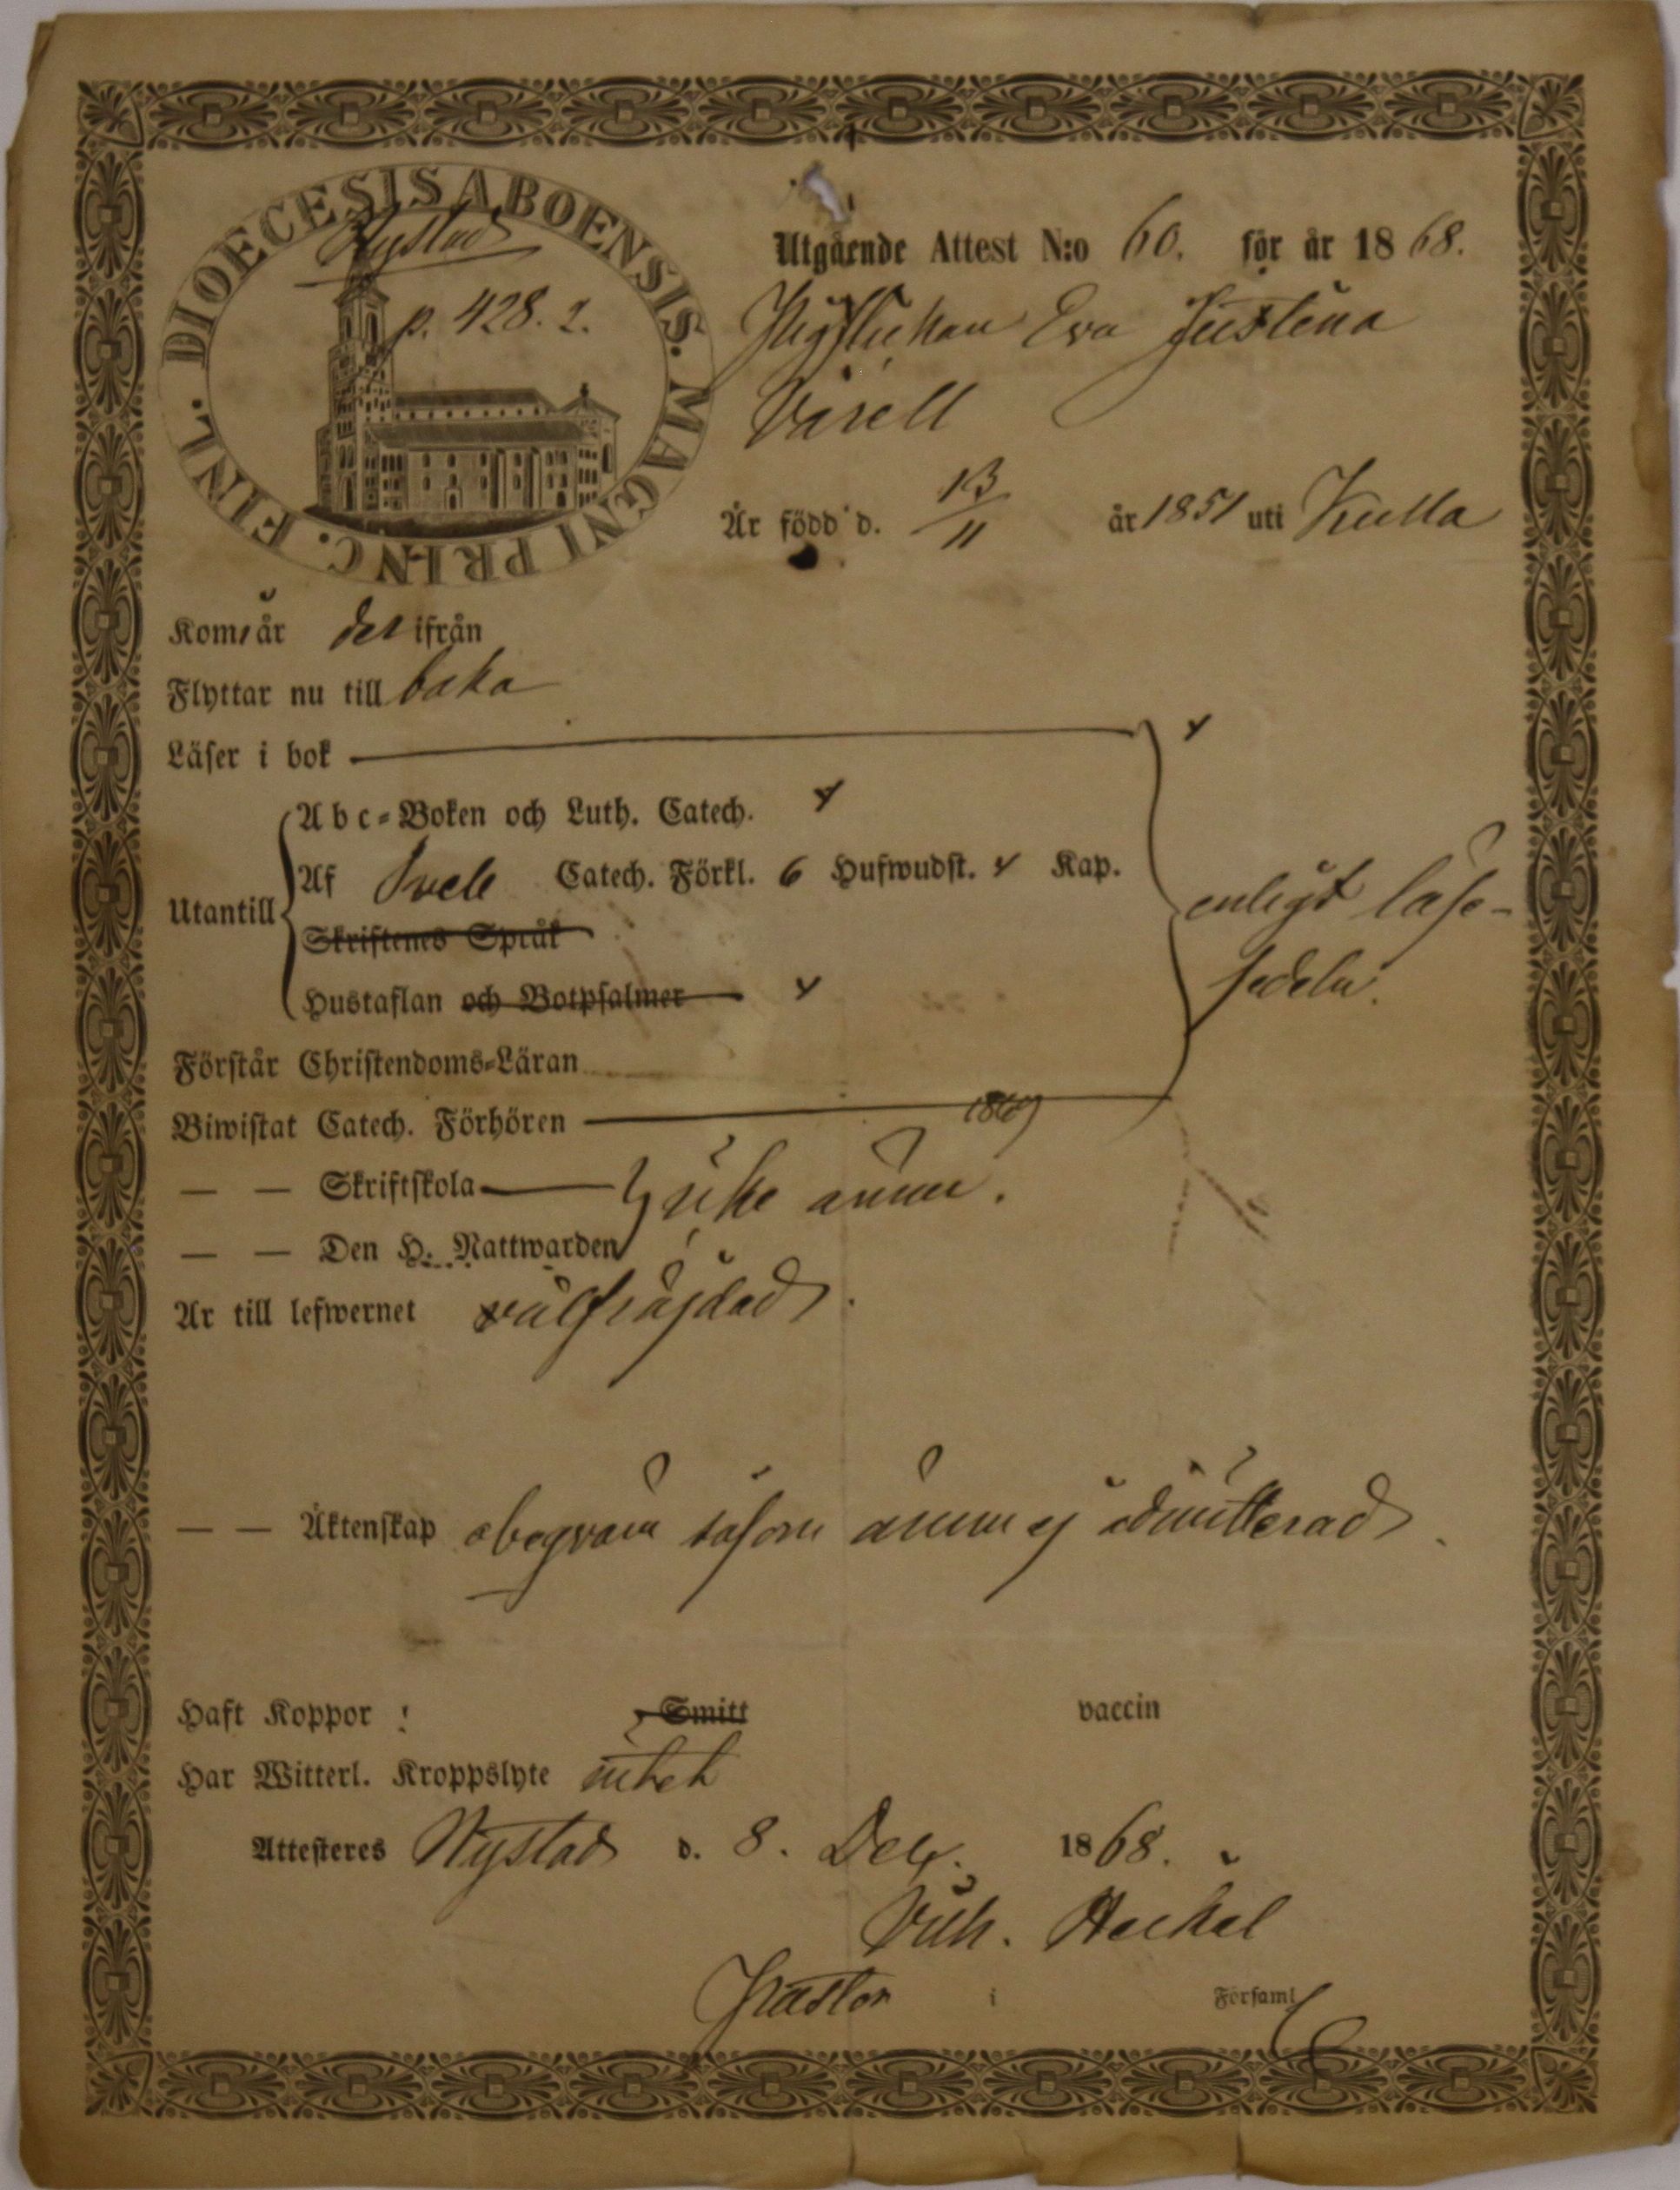 DIOECESIS ABOENSIS. MAGNI PRINC. FINL.
Nystad
p. 428. 2.
Utgående Attest N:o 60. för år 1868.
Eva Justina
Är född d. 13/11 år 1851 uti Kulla
Kom år der ifrån
Flyttar nu till baka
Läser i bok
Abc-Boken och Luth. Catech.
Utantill
Af Sveb Catech. Förkl. 6 Hufwudst. Kap.
Skriftenes Språk
Hustaflan och Botpsalmer
enligt läse-
sedeln.
Förstår Christendoms-Läran
Biwistat Catech. Förhören 1867
— — Skriftskola icke ännu.
— — Den H. Nattwarden
Är till lefwernet välfräjdad.
— — Äktenskap obeqväm såsom ännu ej admitterad.
Haft Koppor Smitt vaccin
Har Witterl. Kroppslyte intet
Attesteres Nystad d. 8. Dec. 1868.
Vilh. Heckel
Pastor i Församl